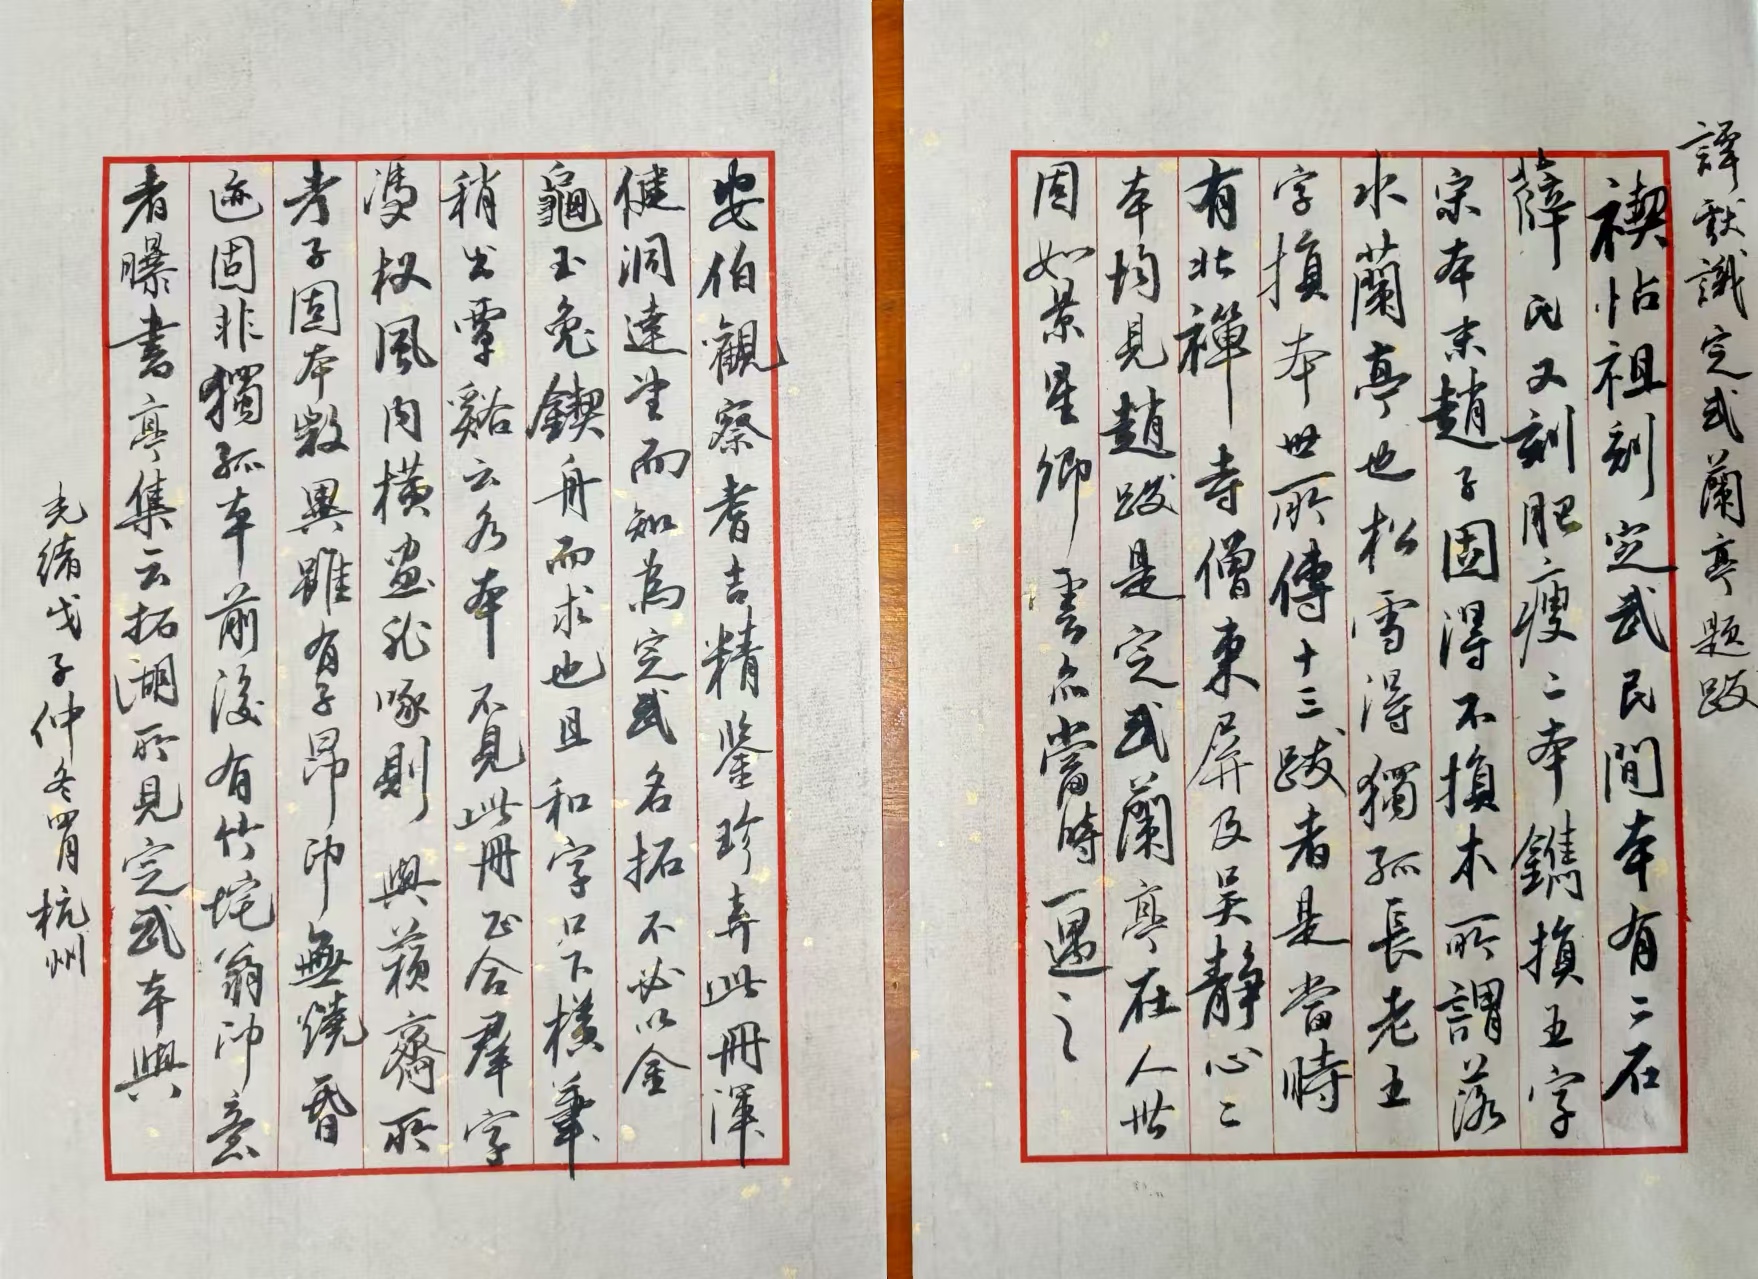 譚獻識定武蘭亭題跋
禊帖祖刻定武民間本有二石
薛氏又刻肥瘦二本鐫損五字
宋本末趙子固得不損本所謂落
水蘭亭也松雪得獨孤長老五
字損本世所傳十三跋者是當時
有北禪寺僧東屏及吴静心二
本均見趙跋是定武蘭亭在人世
固如景星卿雲亦當時一遇之
安伯觀察耆古精鑒珍弆此冊渾
健洞達望而知為定武名拓不必以金
龜玉兔鍥舟而求也且和字只下横筆
稍出覃谿云各本不見此冊正合羣字
杈風内横畫斜啄則與蘋齋所
考子固本數異雖有子昂印無燒昏
迹固非獨孤本前後有竹垞翁印意
者曝書亭集云拓湖所見定武本與
光緒戊子仲冬四月杭州